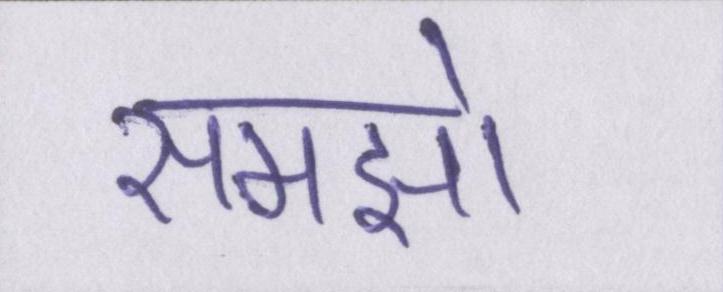 समझो